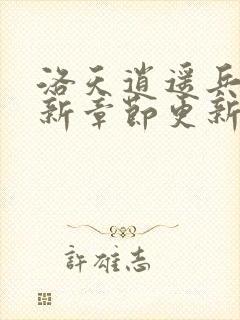 洛天逍遥兵
新章節更新
許雄志